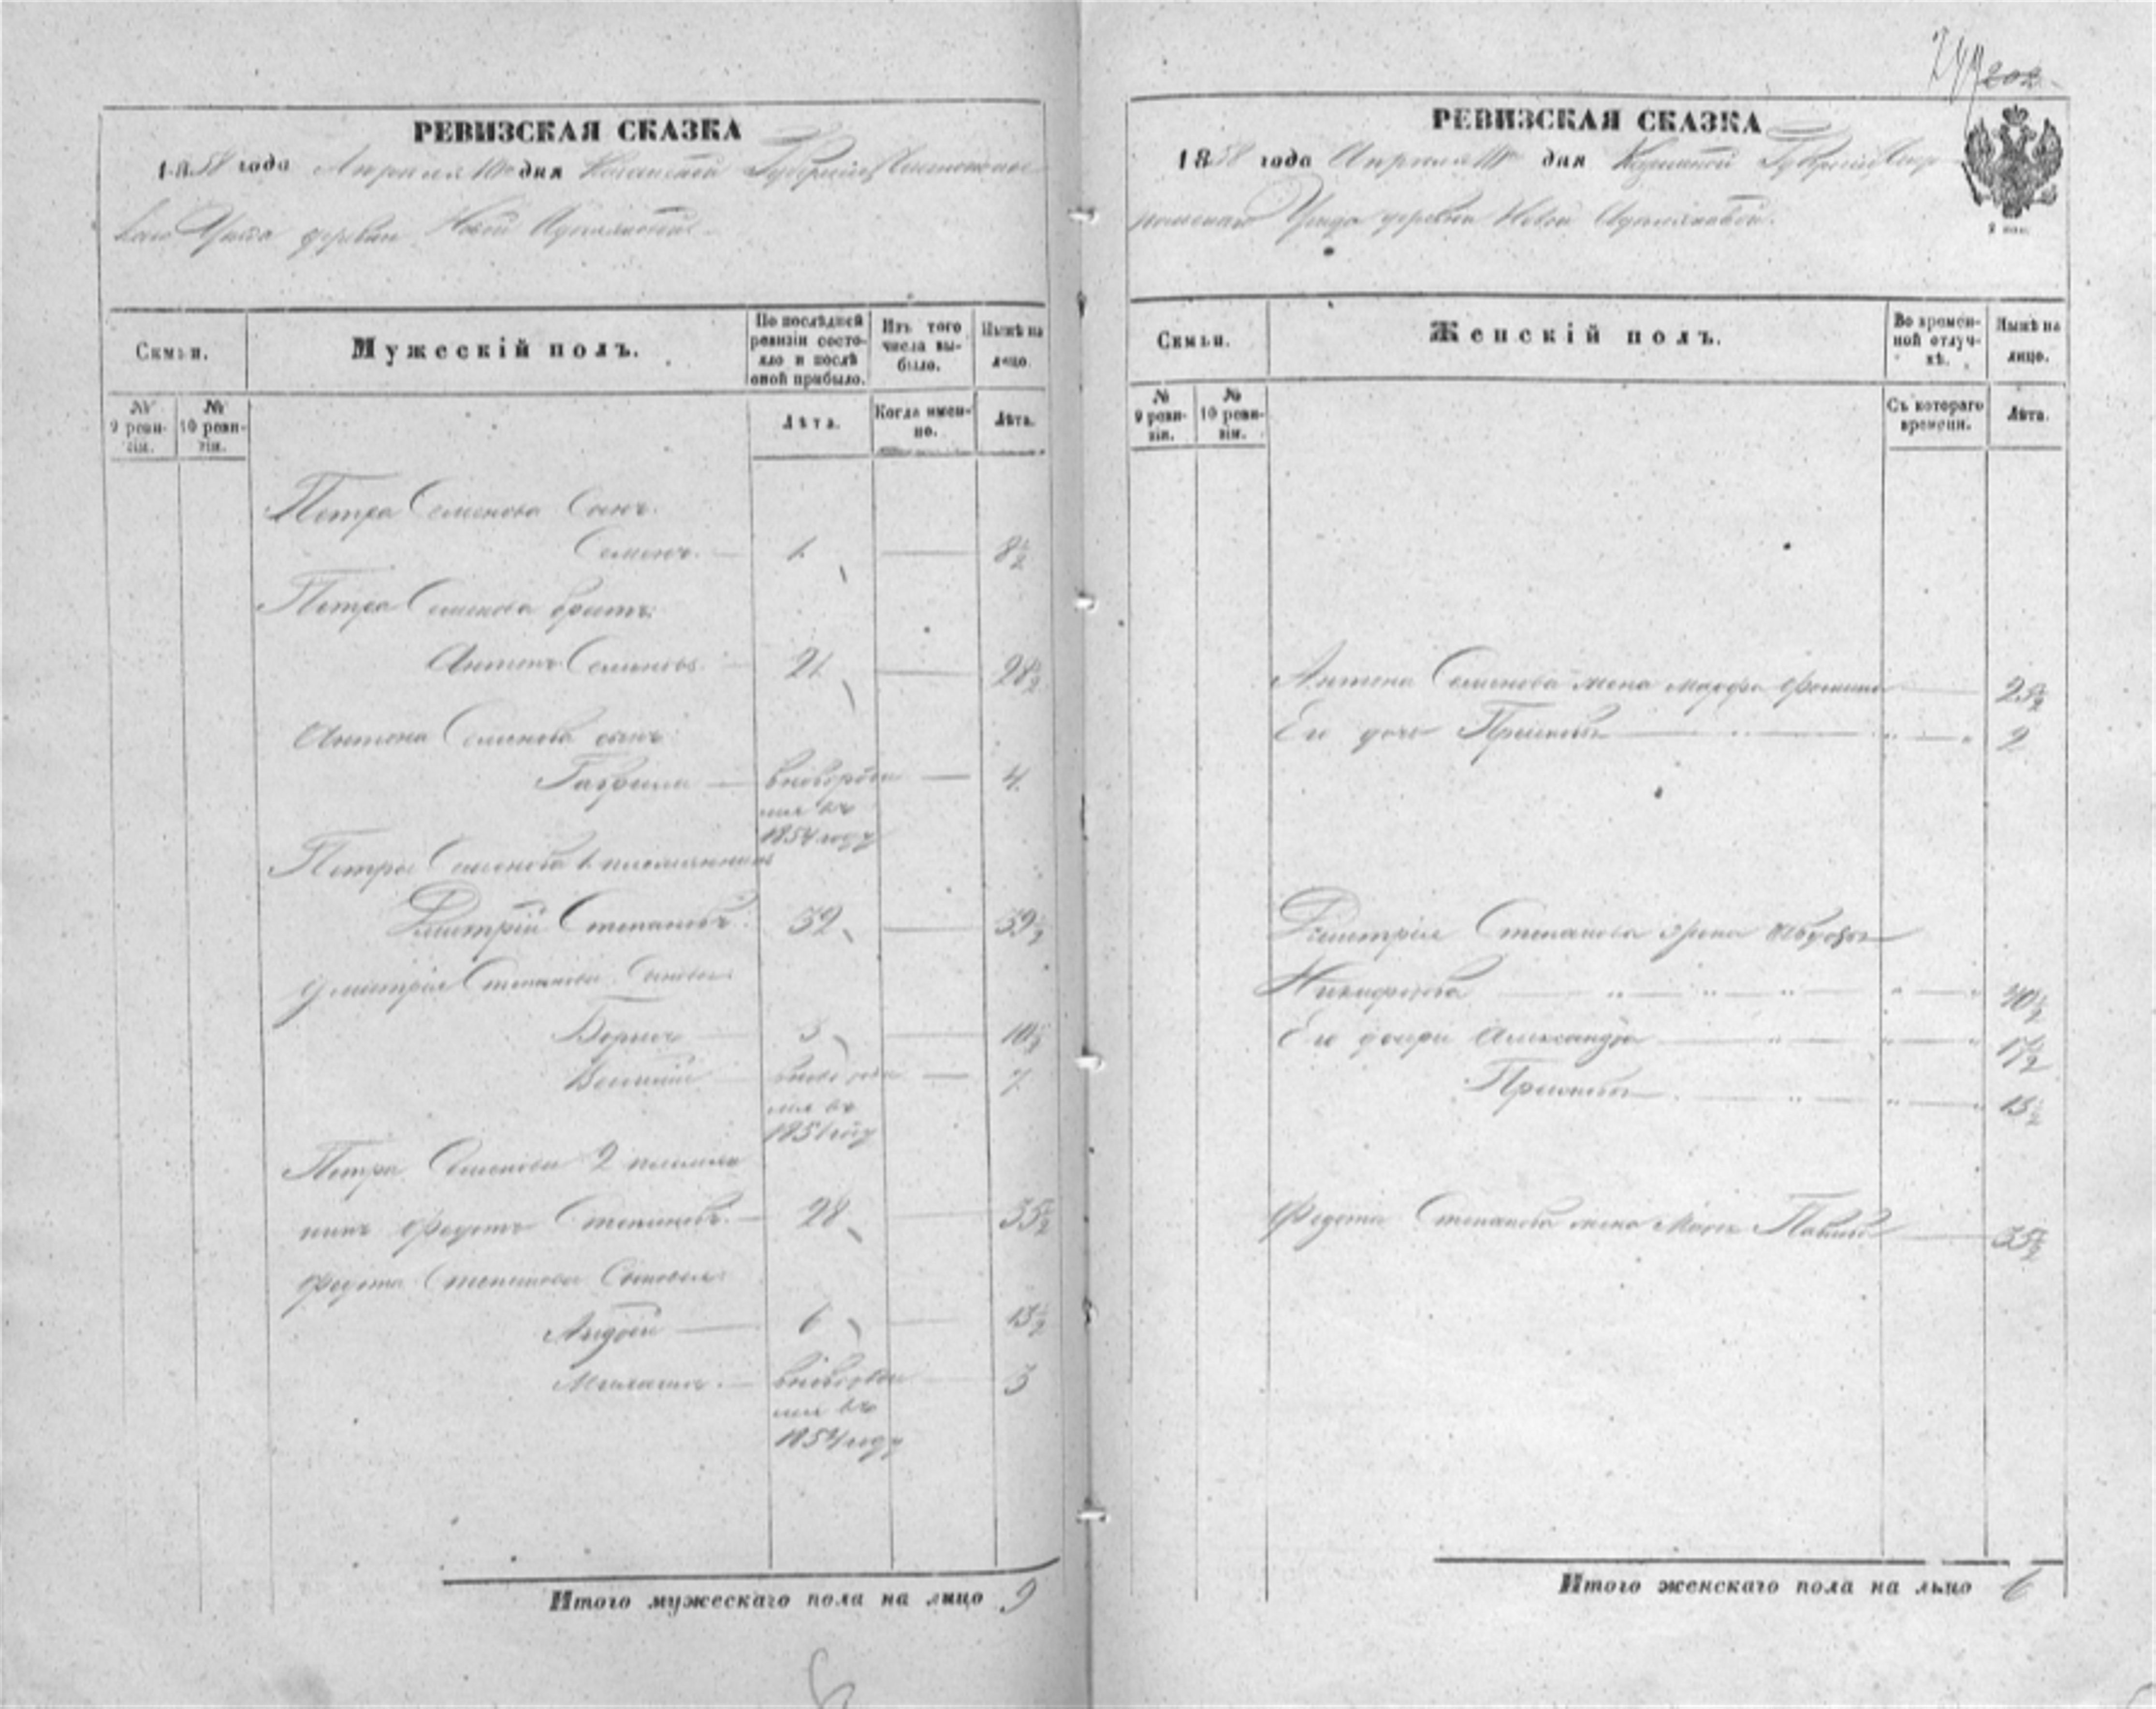 249 202
РЕВИЗСКАЯ СКАЗКА
1858 года Апреля 10го дня Казанской Губернiи Чистополь
скаго Уезда деревни Новой
Семьи.
Мужескiй полъ.
По послѣдней ревизiи состояло и послѣ оной прибыло.
Изъ того числа выбыло.
Нынѣ на лицо.
№ 9 ревизiи.
№ 10 ревизiи.
Лѣта.
Когда именно.
Лѣта.
Петра Семенова сынъ
Семенъ. 1 8½
Петра Семенова братъ:
Антонъ Семеновъ 21 28½
Антона Семенова сынъ
Гаврила вновьрож 4
1854 году
Петра Семенова 1 племянникъ
Дмитрiй Степановъ 32 39½
Дмитрiя Степанова Сыновья
Борисъ 3 10½
7
1851 году
Петра Семенова 2 племян
никъ Федотъ Степановъ. 28 35½
Федота Степанова Сыновья
Андрей 6 13½
3
1854 году
Итого мужескаго пола на лицо 9
РЕВИЗСКАЯ СКАЗКА
1858 года Апреля 10го дня Казанской Губернiи Чисто
польскаго Уезда деревни Новой
Семьи.
Женскiй полъ.
Во временной отлучкѣ.
Нынѣ на лицо.
№ 9 ревизiи.
№ 10 ревизiи.
Съ котораго времени.
Лѣта.
Антона Семенова жена Марфа 25½
Его дочь Прасковья 2
Дмитрiя Степанова жена Авдотья
Никифорова 40½
Его дочери Александра 17½
Прасковья 15½
Федота Степанова жена 35½
Итого женскаго пола на лицо 6